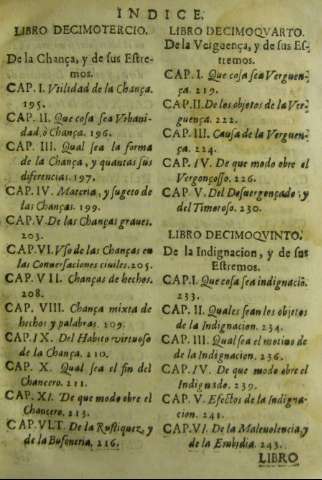 INDICE.
LIBRO DECIMOTERCIO.
De la Chança, y de sus Estre-
mos.
CAP. I. Vtilidad de la Chança.
195.
CAP. II. Que cosa sea Vrbani-
dad, ò Chança. 196.
CAP. III. Qual sea la forma
de la Chança, y quantas sus
diferencias. 197.
CAP. IV. Materia, y sugeto de
las Chanças. 199.
CAP. V. De las Chanças graues.
203.
CAP. VI. Vso de las Chanças en
las Conuersaciones ciuiles. 205.
CAP. VII. Chanças de hechos.
208.
CAP. VIII. Chança mixta de
hechos y palabras. 209.
CAP. IX. Del Habito virtuoso
de la Chança. 210.
CAP. X. Qual sea el fin del
Chancero. 211.
CAP. XI. De que modo obre el
Chancero. 213.
CAP. VLT. De la Rustiquez, y
de la Bufoneria, 216.
LIBRO DECIMOQVARTO.
De la Verguença, y de sus Es-
tremos.
CAP. I. Que cosa sea Verguen-
ça. 219.
CAP. II. De los objetos de la Ver-
guença. 222.
CAP. III. Causa de la Verguen-
ça. 224.
CAP. IV. De que modo obre el
Vergonçoso. 226.
CAP. V. Del Desuergonçado, y
del Timoroso. 230.
LIBRO DECIMOQVINTO.
De la Indignacion, y de sus
Estremos.
CAP. I. Que cosa sea indignaciō.
233.
CAP. II. Quales sean los objetos
de la Indignacion. 234.
CAP. III. Qual sea el motiuo de
de la Indignacion. 236.
CAP. IV. De que modo obre el
Indignado. 239.
CAP. V. Efectos de la Indigna-
cion. 241.
CAP. VI. De la Maleuolencia, y
de la Embidia. 243.
LIBRO